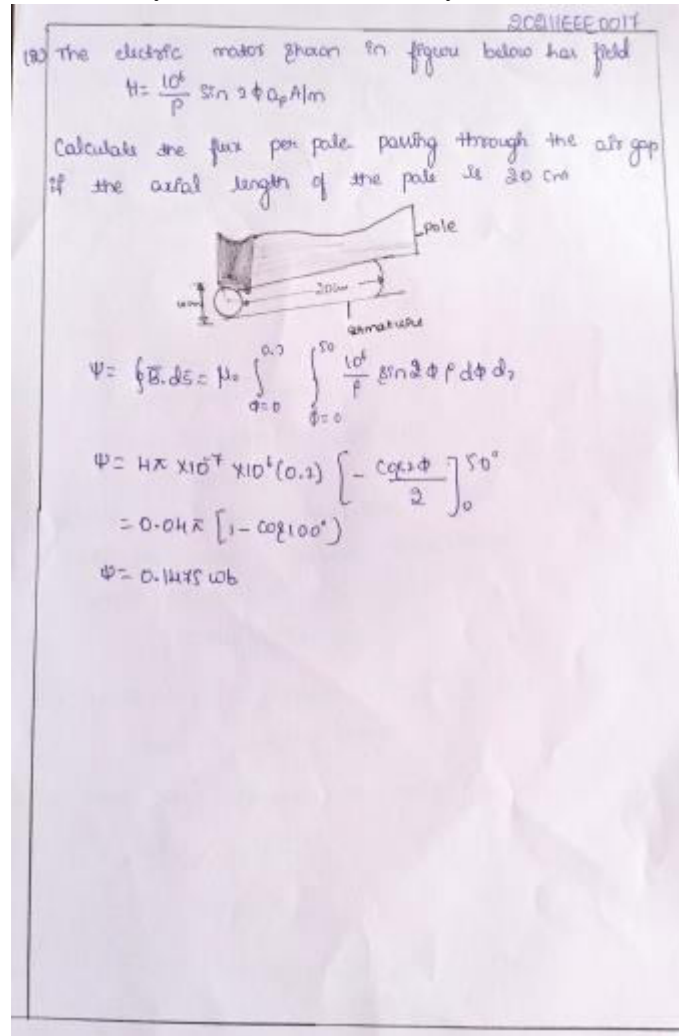 20211IEEE0017
(18) The electric motor shown in figure below has field
H= 10⁶/ρ Sin 2ϕ aρ A/m
Calculate the flux per pole passing through the air gap
if the axial length of the pole is 20 cm
pole
20cm
armature
Ψ= ∮B̄.ds̄= μ₀ ∫ϕ=0^0.2 ∫ϕ=0^50 10⁶/ρ sin2ϕ ρ dϕ dz
Ψ= 4π ×10⁻⁷ ×10⁶(0.2) [- cos2ϕ/2]₀^50°
=0.04π [1-cos100°)
Ψ= 0.1475 wb